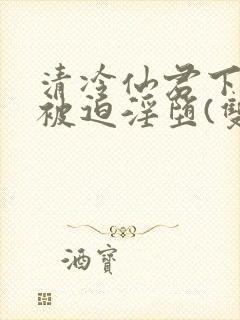 清冷仙君下
被迫淫墮(雙
酒寶